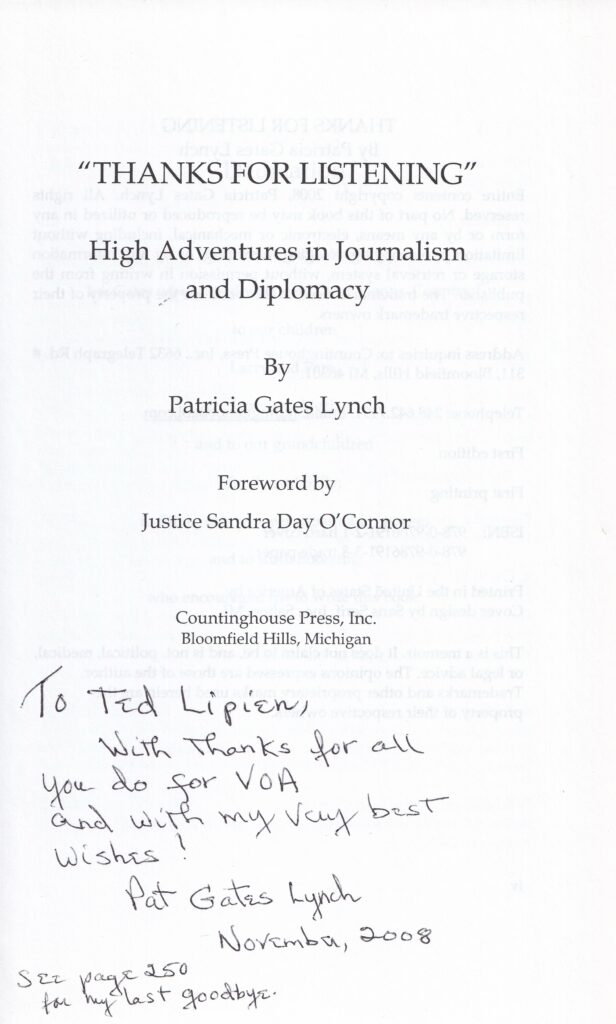 "THANKS FOR LISTENING"
High Adventures in Journalism
and Diplomacy
By
Patricia Gates Lynch
Foreword by
Justice Sandra Day O'Connor
Countinghouse Press, Inc.
Bloomfield Hills, Michigan
To Ted Lipien,
With Thanks for all
you do for VOA
and with my very best
wishes!
Pat Gates Lynch
November, 2008
See page 250
for my last goodbye.